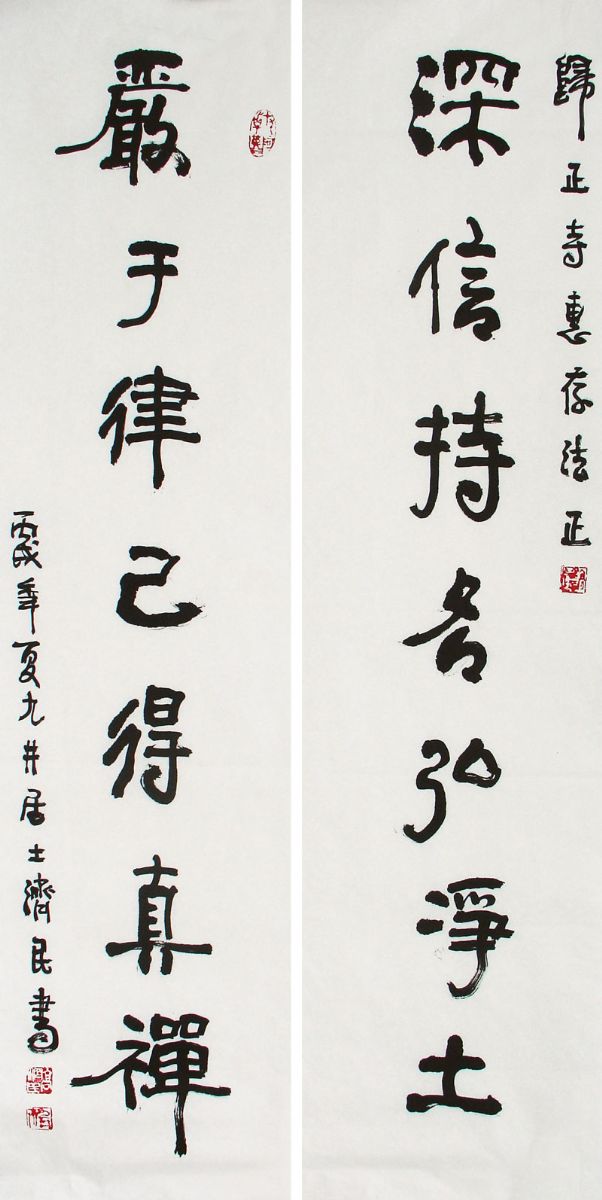 歸正寺惠存法正
深信持名弘淨土
嚴于律己得真禪
丙戌年夏九井居士濟民書